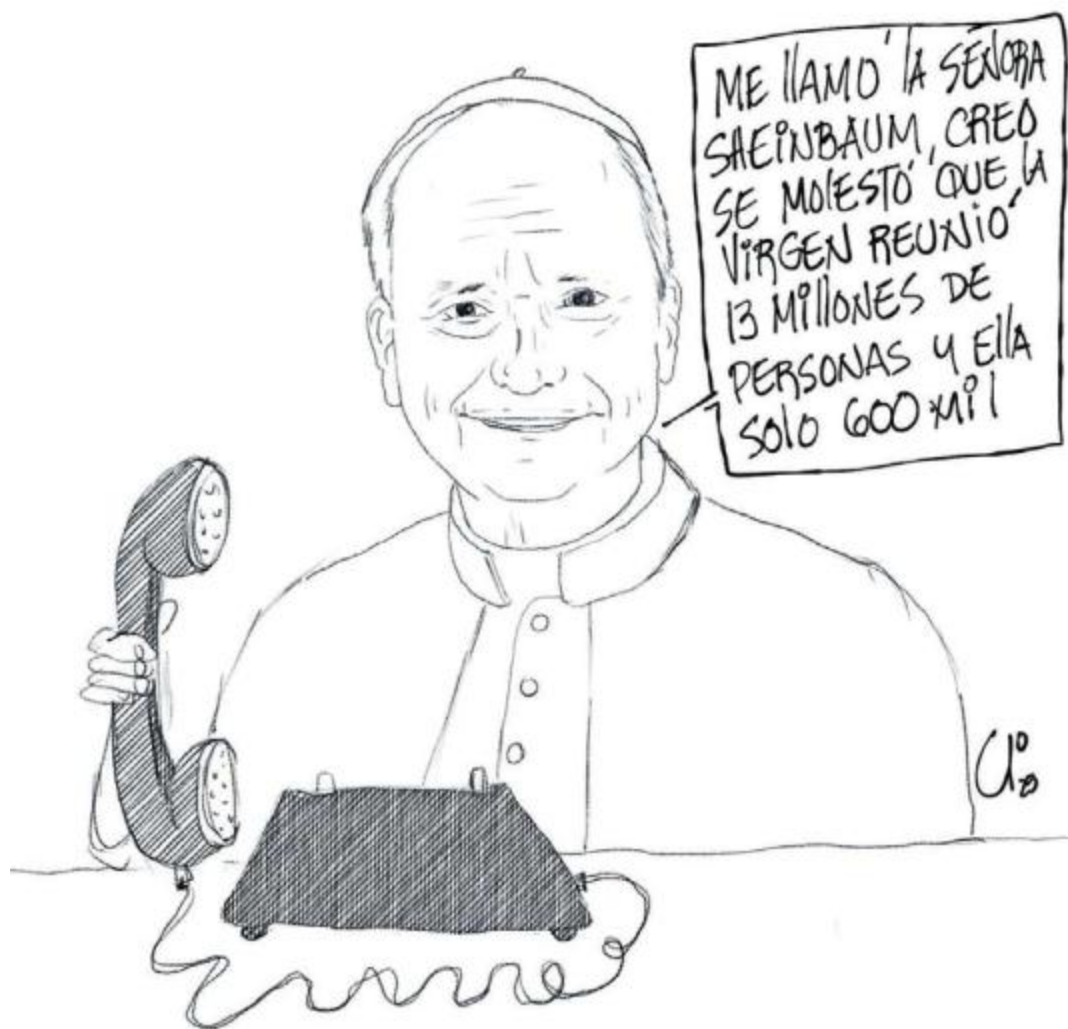 ME llAMÓ lA SEÑORA
SHEINBAUM, CREO
SE MOlESTÓ QUE lA
VIRGEN REUNIÓ
13 MIllONES DE
PERSONAS Y EllA
SOlO 600 MIl